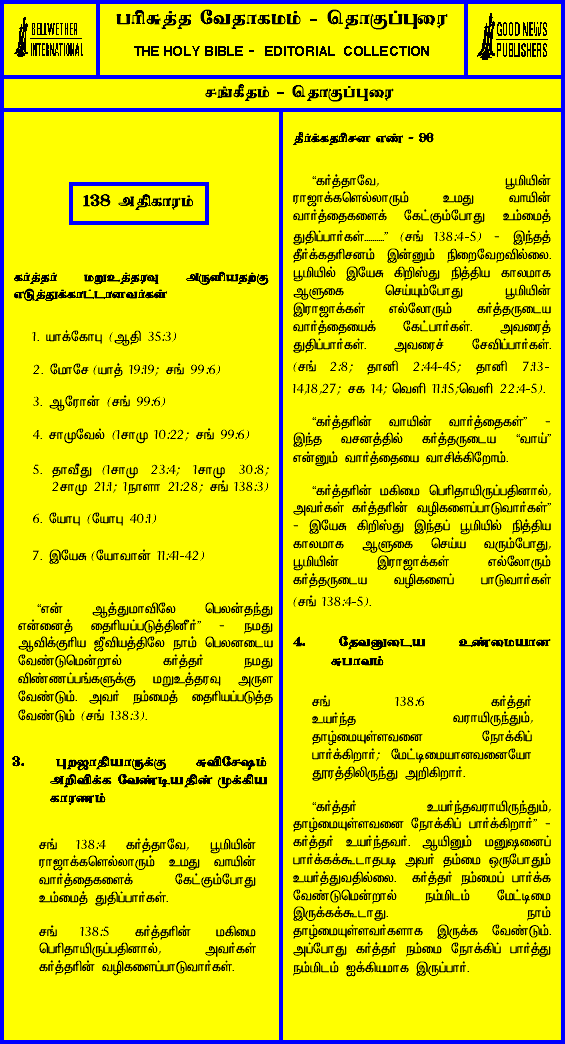 BELLWETHER
INTERNATIONAL
பரிசுத்த வேதாகமம் - தொகுப்புரை
THE HOLY BIBLE - EDITORIAL COLLECTION
GOOD NEWS
PUBLISHERS
சங்கீதம் - தொகுப்புரை
138 அதிகாரம்
கர்த்தர் மறுஉத்தரவு அருளியதற்கு
எடுத்துக்காட்டானவர்கள்
1. யாக்கோபு (ஆதி 35:3)
2. மோசே (யாத் 19:19; சங் 99:6)
3. ஆரோன் (சங் 99:6)
4. சாமுவேல் (1சாமு 10:22; சங் 99:6)
5. தாவீது (1சாமு 23:4; 1சாமு 30:8;
2சாமு 21:1; 1நாளா 21:28; சங் 138:3)
6. யோபு (யோபு 40:1)
7. இயேசு (யோவான் 11:41-42)
“என் ஆத்துமாவிலே பெலன்தந்து
என்னைத் தைரியப்படுத்தினீர்” - நமது
ஆவிக்குரிய ஜீவியத்திலே நாம் பெலனடைய
வேண்டுமென்றால் கர்த்தர் நமது
விண்ணப்பங்களுக்கு மறுஉத்தரவு அருள
வேண்டும். அவர் நம்மைத் தைரியப்படுத்த
வேண்டும் (சங் 138:3).
3. புறஜாதியாருக்கு சுவிசேஷம்
அறிவிக்க வேண்டியதின் முக்கிய
காரணம்
சங் 138:4 கர்த்தாவே, பூமியின்
ராஜாக்களெல்லாரும் உமது வாயின்
வார்த்தைகளைக் கேட்கும்போது
உம்மைத் துதிப்பார்கள்.
சங் 138:5 கர்த்தரின் மகிமை
பெரிதாயிருப்பதினால், அவர்கள்
கர்த்தரின் வழிகளைப்பாடுவார்கள்.
தீர்க்கதரிசன எண் - 96
“கர்த்தாவே, பூமியின்
ராஜாக்களெல்லாரும் உமது வாயின்
வார்த்தைகளைக் கேட்கும்போது உம்மைத்
துதிப்பார்கள்..........” (சங் 138:4-5) - இந்தத்
தீர்க்கதரிசனம் இன்னும் நிறைவேறவில்லை.
பூமியில் இயேசு கிறிஸ்து நித்திய காலமாக
ஆளுகை செய்யும்போது பூமியின்
இராஜாக்கள் எல்லோரும் கர்த்தருடைய
வார்த்தையைக் கேட்பார்கள். அவரைத்
துதிப்பார்கள். அவரைச் சேவிப்பார்கள்.
(சங் 2:8; தானி 2:44-45; தானி 7:13-
14,18,27; சக 14; வெளி 11:15;வெளி 22:4-5).
“கர்த்தரின் வாயின் வார்த்தைகள்” -
இந்த வசனத்தில் கர்த்தருடைய “வாய்”
என்னும் வார்த்தையை வாசிக்கிறோம்.
“கர்த்தரின் மகிமை பெரிதாயிருப்பதினால்,
அவர்கள் கர்த்தரின் வழிகளைப்பாடுவார்கள்”
- இயேசு கிறிஸ்து இந்தப் பூமியில் நித்திய
காலமாக ஆளுகை செய்ய வரும்போது,
பூமியின் இராஜாக்கள் எல்லோரும்
கர்த்தருடைய வழிகளைப் பாடுவார்கள்
(சங் 138:4-5).
4. தேவனுடைய உண்மையான
சுபாவம்
சங் 138:6 கர்த்தர்
உயர்ந்த வராயிருந்தும்,
தாழ்மையுள்ளவனை நோக்கிப்
பார்க்கிறார்; மேட்டிமையானவனையோ
தூரத்திலிருந்து அறிகிறார்.
“கர்த்தர் உயர்ந்தவராயிருந்தும்,
தாழ்மையுள்ளவனை நோக்கிப் பார்க்கிறார்” -
கர்த்தர் உயர்ந்தவர். ஆயினும் மனுஷனைப்
பார்க்கக்கூடாதபடி அவர் தம்மை ஒருபோதும்
உயர்த்துவதில்லை. கர்த்தர் நம்மைப் பார்க்க
வேண்டுமென்றால் நம்மிடம் மேட்டிமை
இருக்கக்கூடாது. நாம்
தாழ்மையுள்ளவர்களாக இருக்க வேண்டும்.
அப்போது கர்த்தர் நம்மை நோக்கிப் பார்த்து
நம்மிடம் ஐக்கியமாக இருப்பார்.